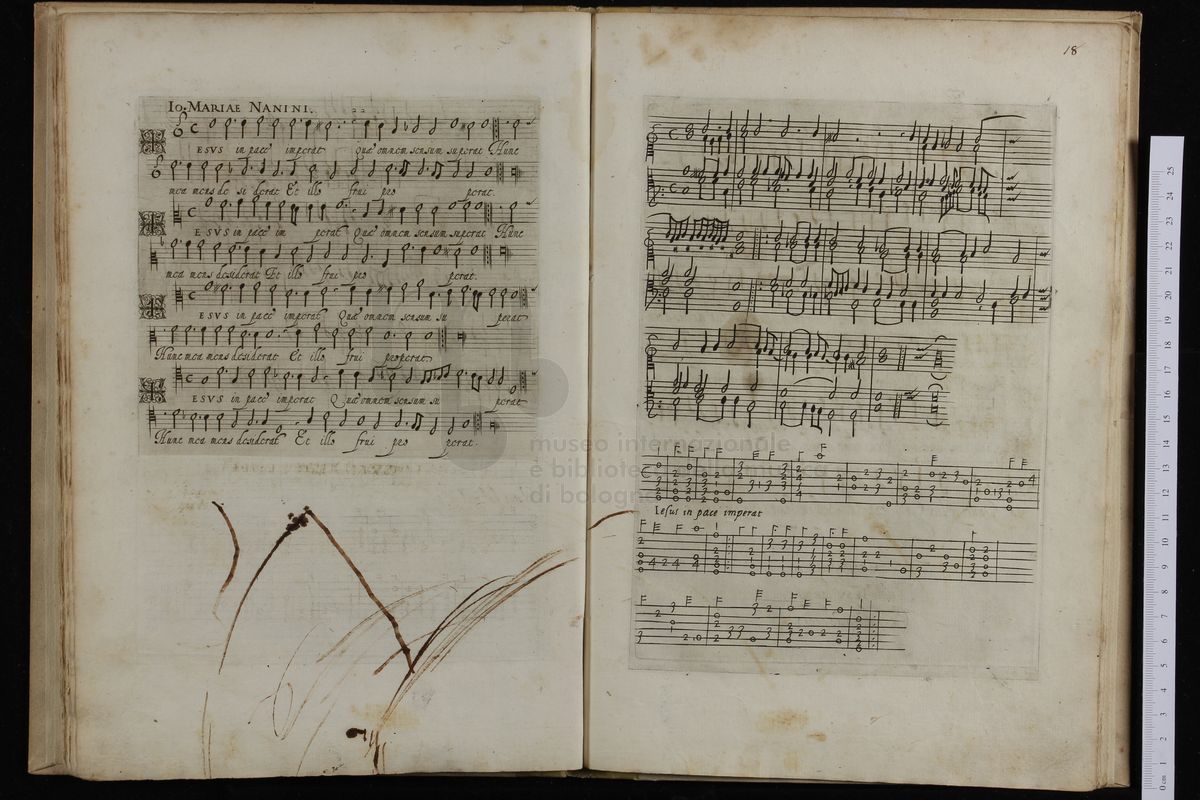 IO: MARIAE NANINI.
ESVS in pace imperat Quæ omnem sensum superat Hunc
mea mens de si derat Et illo frui pro perat.
ESVS in pace im perat Quæ omnem sensum superat Hunc
mea mens desiderat Et illo frui pro perat.
ESVS in pace imperat Quæ omnem sensum su perat
Hunc mea mens desiderat Et illo frui properat
ESVS in pace imperat Quæ omnem sensum su perat
Hunc mea mens desiderat Et illo frui pro perat.
18
Iesus in pace imperat
museo internazionale
e biblioteca della musica
di bologna